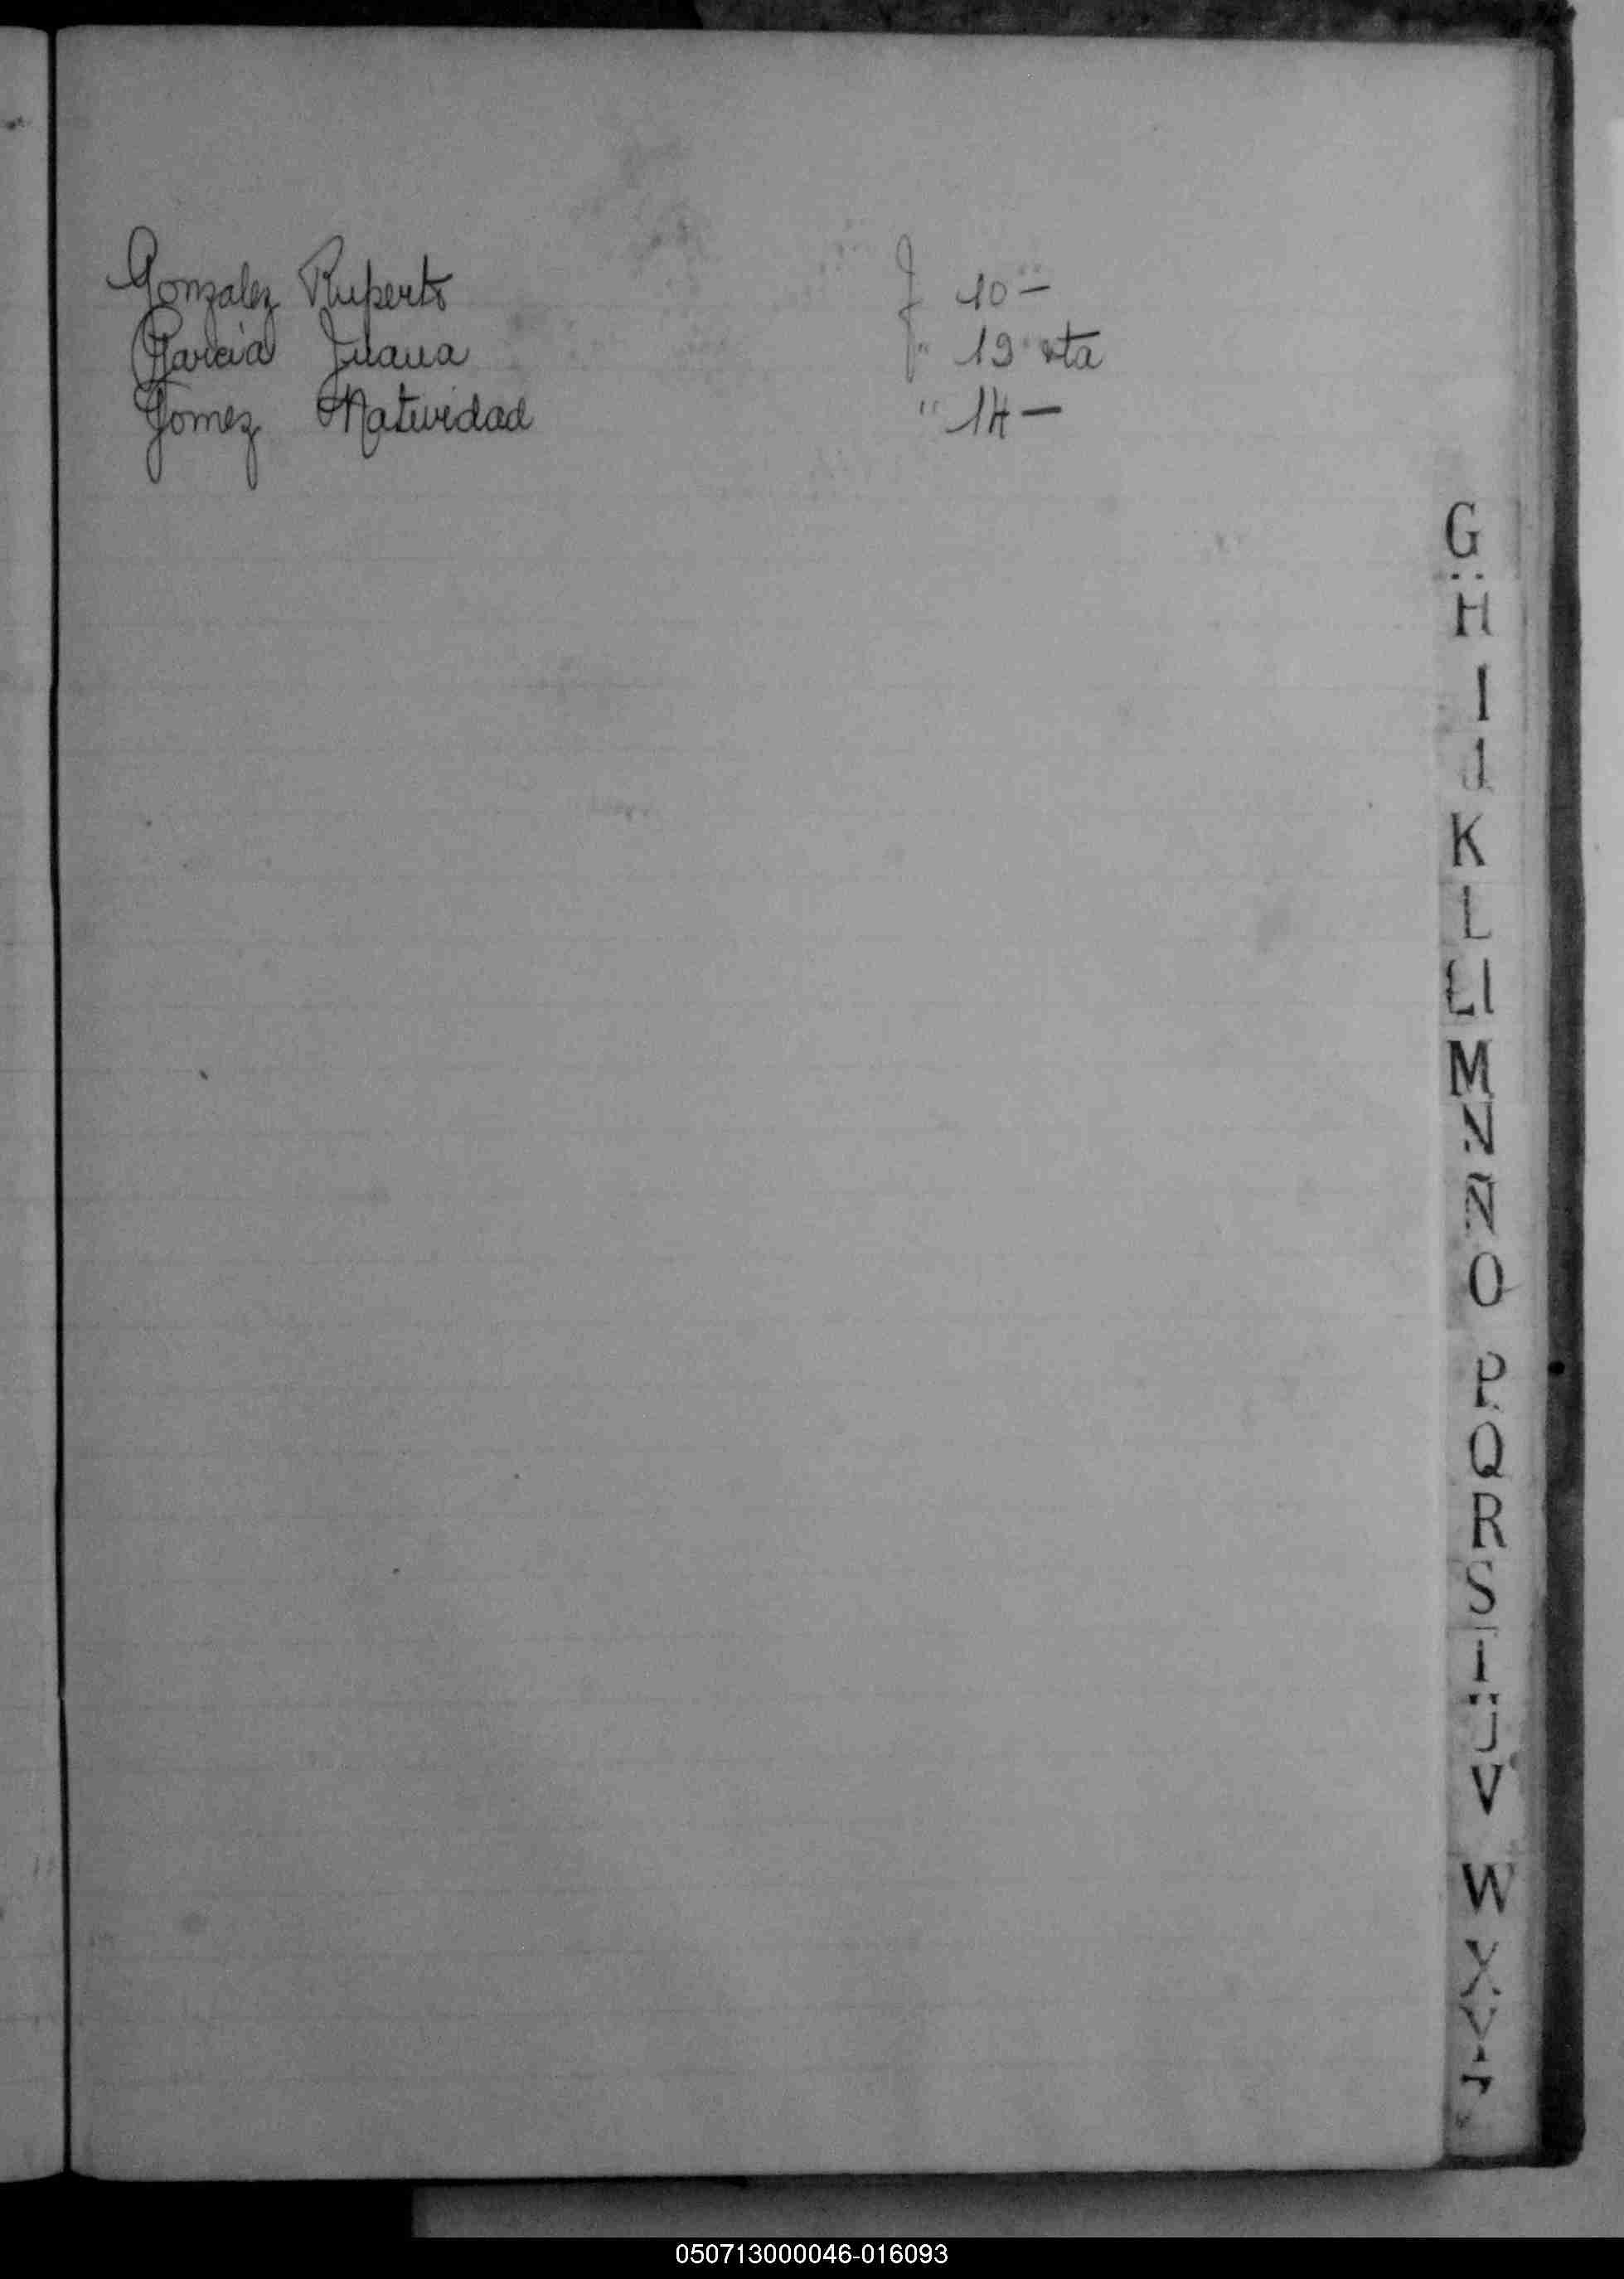 Gonzalez Ruperto f 10 –
Garcia Juana " 19 vta
Gomez Natividad " 14 –
G
H
I
J
K
L
Ll
M
N
Ñ
O
P
Q
R
S
T
U
V
W
X
Y
050713000046-016093